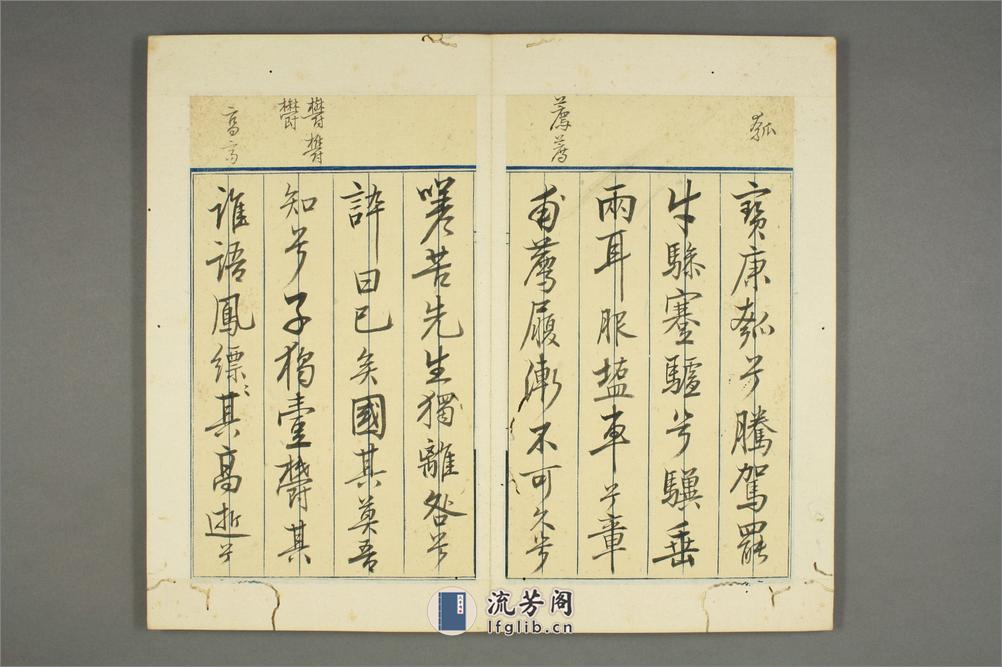 瓠
寶康瓠兮騰駕罷
牛驂蹇驢兮驥垂
兩耳服鹽車兮章
薦薦
甫薦履漸不可久兮
嗟苦先生獨離咎兮
誶曰已矣國其莫吾
欝欝
欝欝
知兮子獨壹欝其
高高
誰語鳳縹〻其高逝兮
流芳阁
lfglib.cn